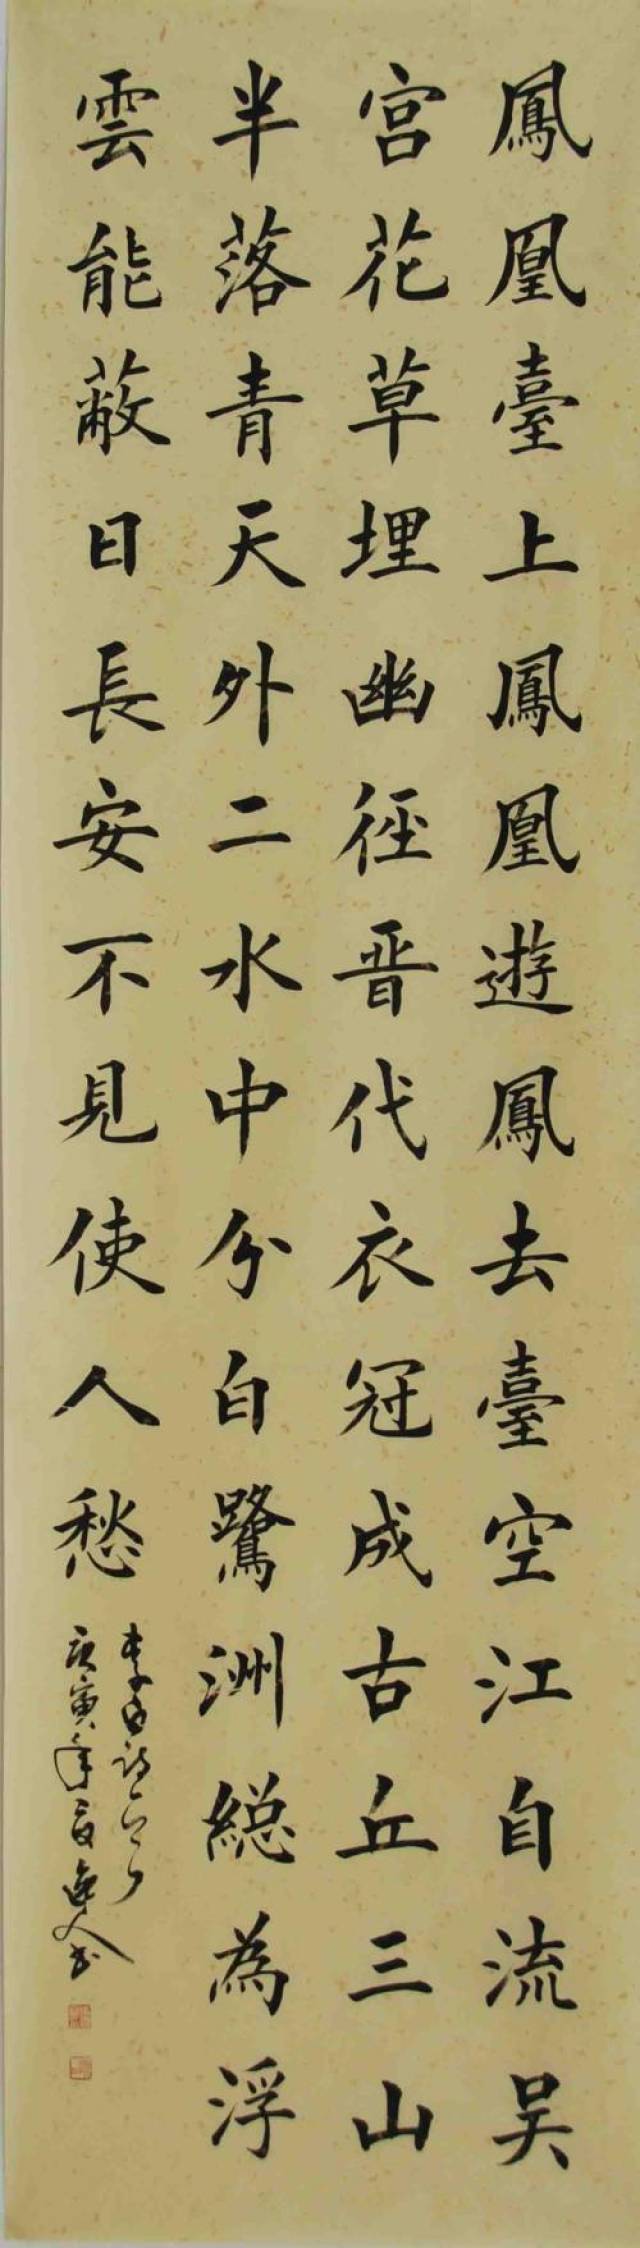 鳳凰臺上鳳凰遊鳳去臺空江自流吴
宫花草埋幽徑晋代衣冠成古丘三山
半落青天外二水中分白鷺洲總為浮
雲能蔽日長安不見使人愁
李白詩一首
庚寅年夏逸人书